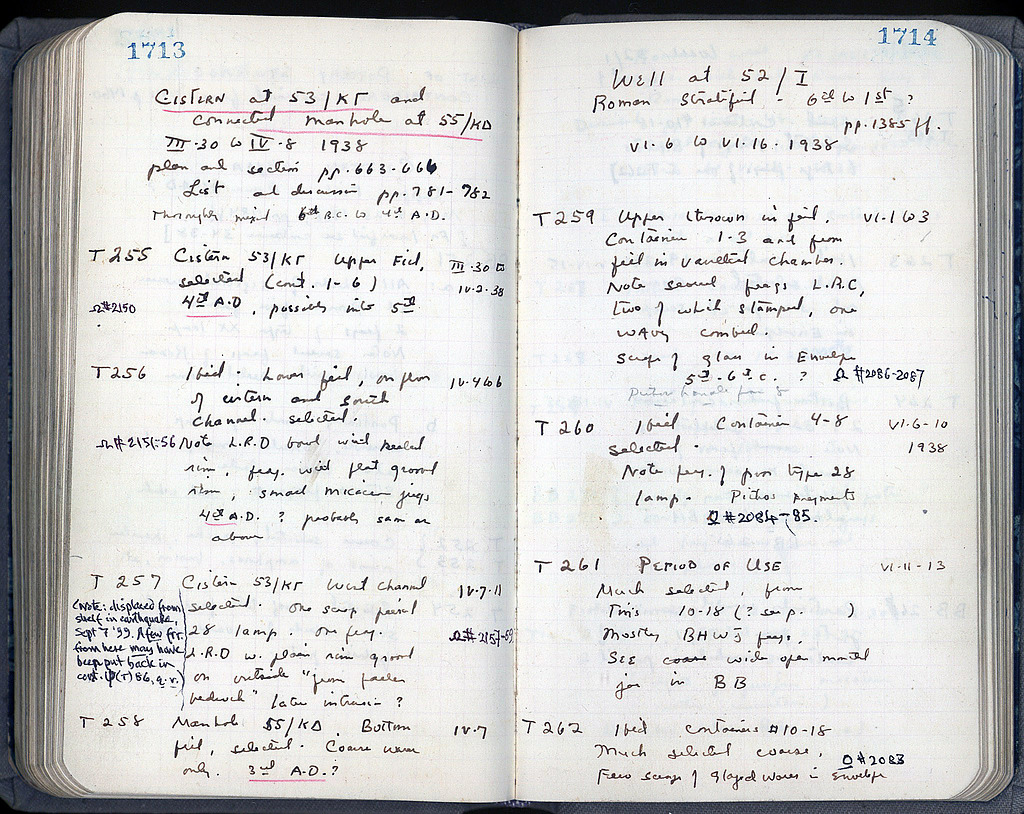 1713
CISTERN at 53/ΚΓ and
connected manhole at 55/ΚΔ
III·30 to IV·8 1938
plan and section pp. 663-666
List and discussion pp. 781-782
Throughly mixed 6th B.C. to 4th A.D.
T 255 Cistern 53/ΚΓ Upper Fill, III·30 to
selected (cont. 1-6) IV·2·38
4th A.D, possibly into 5th
Ω#2150
T 256 Ibid. Lower fill, on floor IV·4 to 6
of cistern and south
channel. selected.
Ω#2151-56 Note L.R.D bowl with
rim, frag. with flat grooved
rim, small micaceous jugs
4th A.D. ? probably same as
above
T 257 Cistern 53/ΚΓ West channel IV·7·11
selected. One scrap period
28 lamp. One frag. Ω#2157-59
L.R.D w. plain rim grooved
on outside "from
bedrock" later intrusion ?
(Note: displaced from
shelf in earthquake,
Sept 7 '99. A few frr.
from here may have
been put back in
cont. (T) 86, q.v.)
T 258 Manhole 55/ΚΔ, Bottom IV·7
fill, selected. Coarse ware
only. 3rd A.D. ?
1714
WELL at 52/Ι
Roman Stratified - 6th to 1st ?
pp. 1385 ff.
VI·6 to VI·16·1938
T 259 Upper thrown in fill, VI·1 to 3
Container 1-3 and from
fill in vaulted chamber.
Note several frags L.R.C,
two of which stamped, one
wavy combed.
scraps of glass in Envelope
5th-6th c. ? Ω #2086-2087
Pithos handle
T 260 Ibid Container 4-8 VI·6-10
selected. 1938
Note frag. of type 28
lamp. Pithos fragments
Ω #2084-85.
T 261 PERIOD OF USE VI·11-13
Much selected, from
Tins 10-18 (? sep. )
Mostly BHWJ frags.
SEE coarse wide open mouthed
jar in BB
T 262 Ibid containers #10-18
Much selected coarse, Ω #2083
Few scraps of glazed wares in Envelope